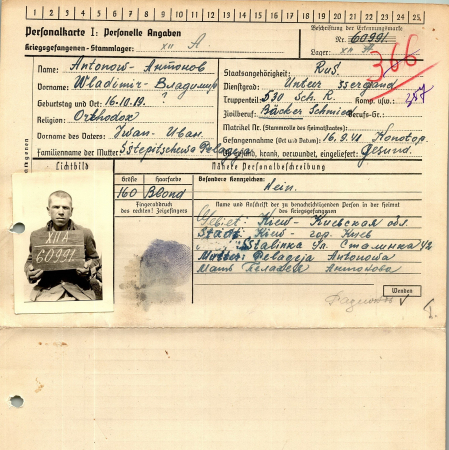 1 2 3 4 5 6 7 8 9 10 11 12 13 14 15 16 17 18 19 20 21 22 23 24 25
Personalkarte I: Personelle Angaben
Kriegsgefangenen-Stammlager: XII A
Beschriftung der Erkennungsmarke
Nr. 60991
Lager: XII A
366
Name: Antonow - Антонов
Vorname: Wladimir - Владимир
Geburtstag und Ort: 16.10.19. ?
Religion: Orthodox
Vorname des Vaters: Iwan - Иван.
Familienname der Mutter: Sstepitschewa Pelageja
Staatsangehörigkeit: Rus.
Dienstgrad: Unter
Truppenteil: 530 Sch. R. Komp. usw.:
Zivilberuf: Bäcker Schmied Berufs-Gr.:
Matrikel Nr. (Stammrolle des Heimatstaates):
Gefangennahme (Ort und Datum): 16.9.41 Konotop.
Ob gesund, krank, verwundet, eingeliefert: Gesund.
Lichtbild
Nähere Personalbeschreibung
Größe
Haarfarbe
Besondere Kennzeichen:
160
Blond
Nein.
Fingerabdruck
des rechten! Zeigefingers
Name und Anschrift der zu benachrichtigenden Person in der Heimat
des Kriegsgefangenen
Gebiet: Kiew - Киевская обл.
Stadt: Kiew - гор. Киев
Stalinka Ул. Сталинка
Mutter: Pelageja Antonowa
Мать Антонова
XII A
60991
Wenden